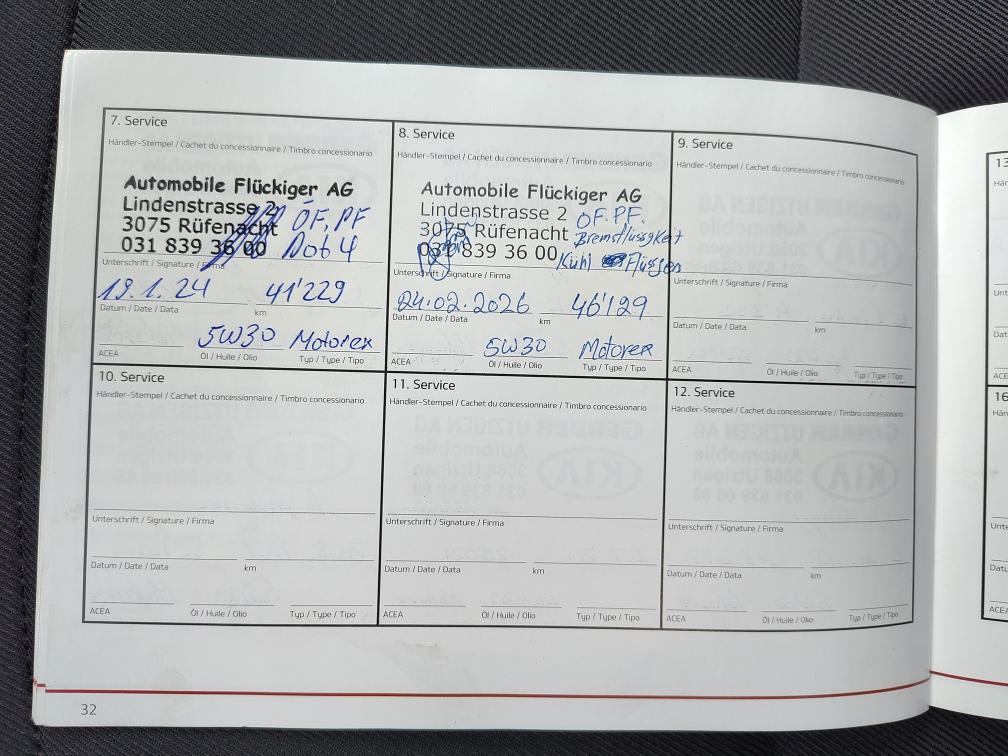 7. Service
Händler-Stempel / Cachet du concessionnaire / Timbro concessionario
Automobile Flückiger AG
Lindenstrasse 2
3075 Rüfenacht
031 839 36 00
ÖF, PF
Dot 4
Unterschrift / Signature / Firma
19.1.24 41'229
Datum / Date / Data km
5W30 Motorex
ACEA Öl / Huile / Olio Typ / Type / Tipo
8. Service
Händler-Stempel / Cachet du concessionnaire / Timbro concessionario
Automobile Flückiger AG
Lindenstrasse 2
3075 Rüfenacht
031 839 36 00
ÖF. PF.
Bremsflüssgkeit
Kühl Flüssen
Unterschrift / Signature / Firma
24.02.2026 46'129
Datum / Date / Data km
5W30 Motorex
ACEA Öl / Huile / Olio Typ / Type / Tipo
9. Service
Händler-Stempel / Cachet du concessionnaire / Timbro concessionario
Unterschrift / Signature / Firma
Datum / Date / Data km
ACEA Öl / Huile / Olio Typ / Type / Tipo
10. Service
Händler-Stempel / Cachet du concessionnaire / Timbro concessionario
Unterschrift / Signature / Firma
Datum / Date / Data km
ACEA Öl / Huile / Olio Typ / Type / Tipo
11. Service
Händler-Stempel / Cachet du concessionnaire / Timbro concessionario
Unterschrift / Signature / Firma
Datum / Date / Data km
ACEA Öl / Huile / Olio Typ / Type / Tipo
12. Service
Händler-Stempel / Cachet du concessionnaire / Timbro concessionario
Unterschrift / Signature / Firma
Datum / Date / Data km
ACEA Öl / Huile / Olio Typ / Type / Tipo
32
13
Hän
Unt
Dat
ACE
16
Hän
Unte
Datu
ACEA